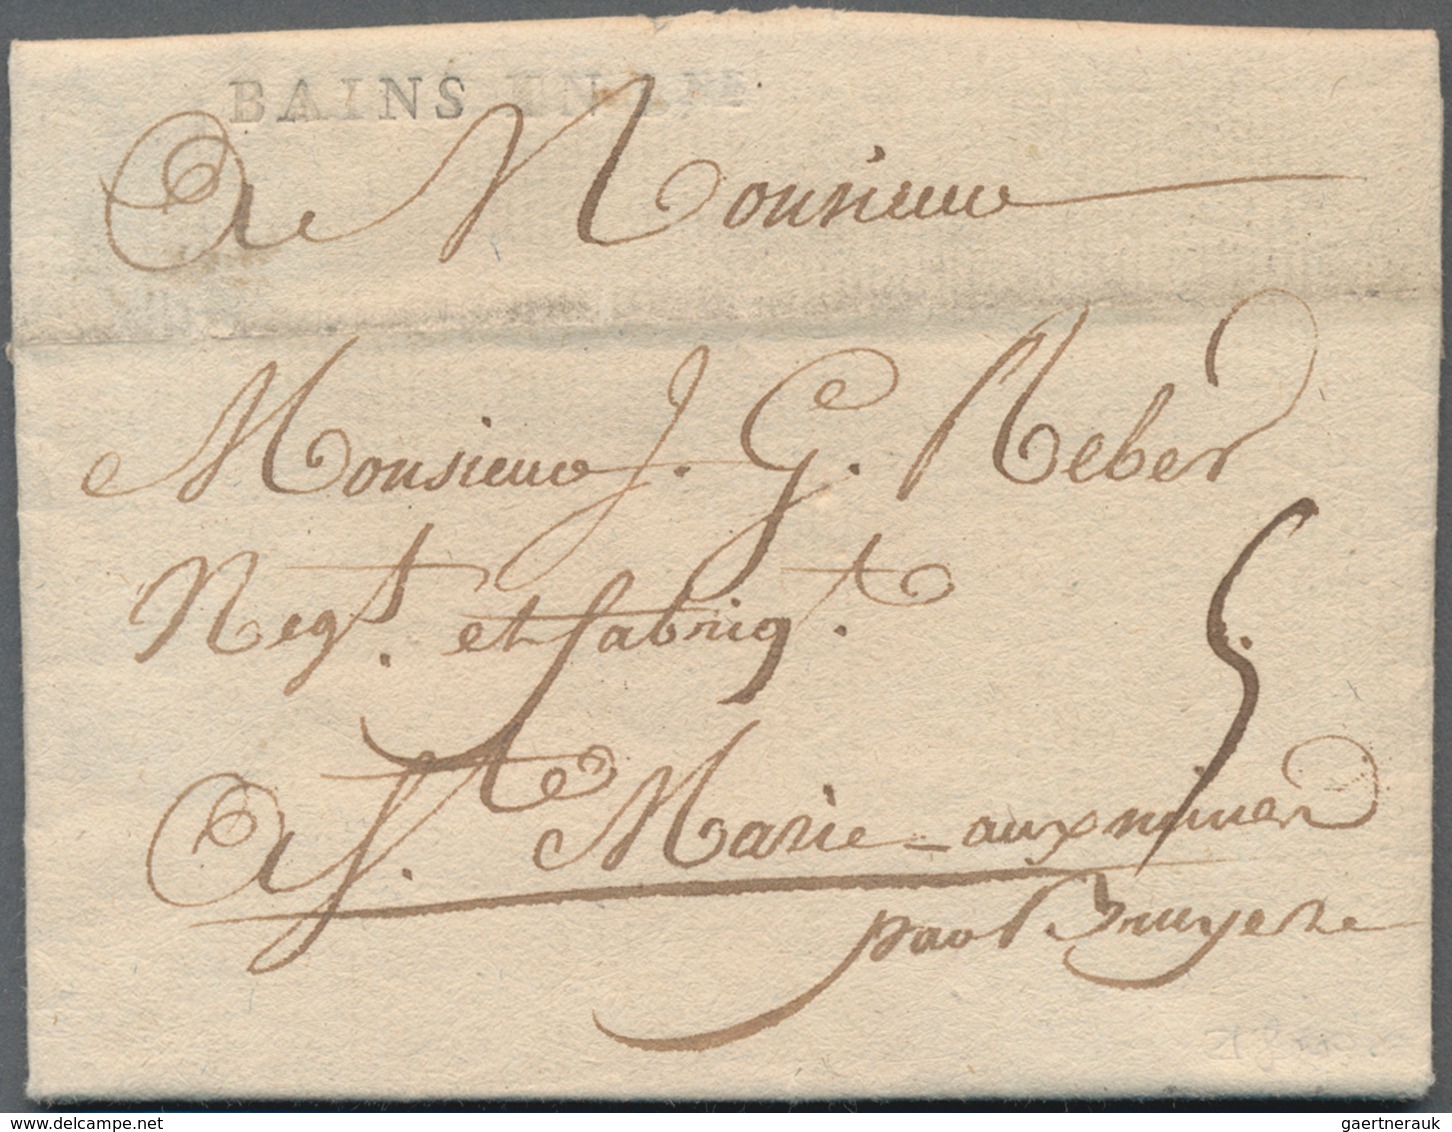 BAINS EN L.NE
A Monsieur
Monsieur J. G. Reber
Negt. et fabriqt.
A Ste. Marie-aux mines
par Bruyere
5
gaertnerauk